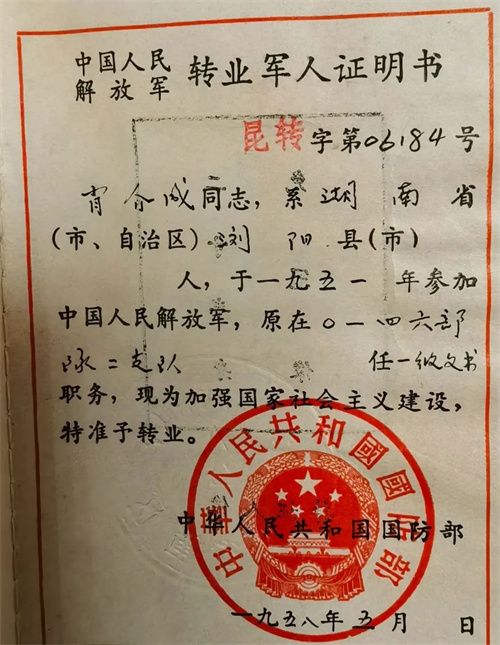 中国人民
解放军 转业军人证明书
昆转字第06184号
肖合成同志，系湖南省
(市、自治区)浏阳县(市)
人，于一九五一年参加
中国人民解放军，原在〇一四六部
队二支队 任一级文书
职务，现为加强国家社会主义建设，
特准予转业。
中华人民共和国国防部
中华人民共和國國防部
一九五八年五月 日